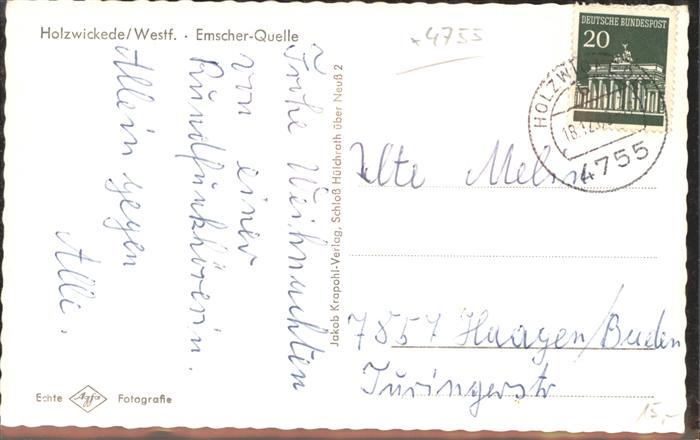 Holzwickede/Westf. · Emscher-Quelle
×4755
Frohe Weihnachten
von einer
Rundfunkhörerin.
Allein gegen
Alle.
Jakob Krapohl-Verlag, Schloß Hülchrath über Neuß 2
DEUTSCHE BUNDESPOST
20
HOLZWI
18.12.
4755
Ute
7857 Haagen/Baden
Turingerstr
Echte Agfa Fotografie
15,-